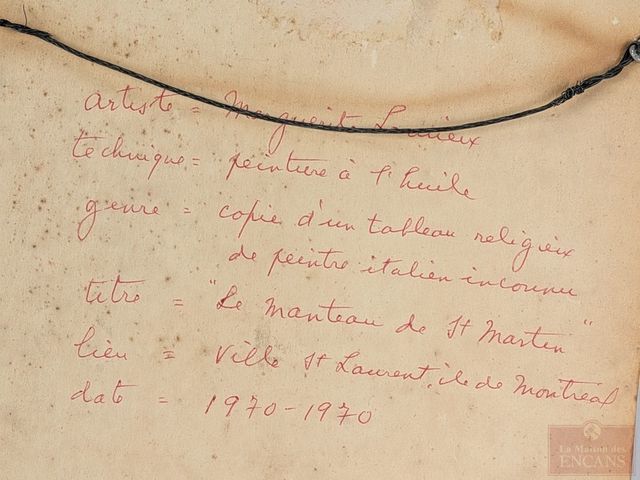 artiste = Marguerite Lemieux
technique = peinture à l'huile
genre = copie d'un tableau religieux
de peintre italien inconnu
titre = "Le manteau de St Martin"
lieu = Ville St Laurent, île de Montréal
date = 1970-1970
La Maison des
ENCANS